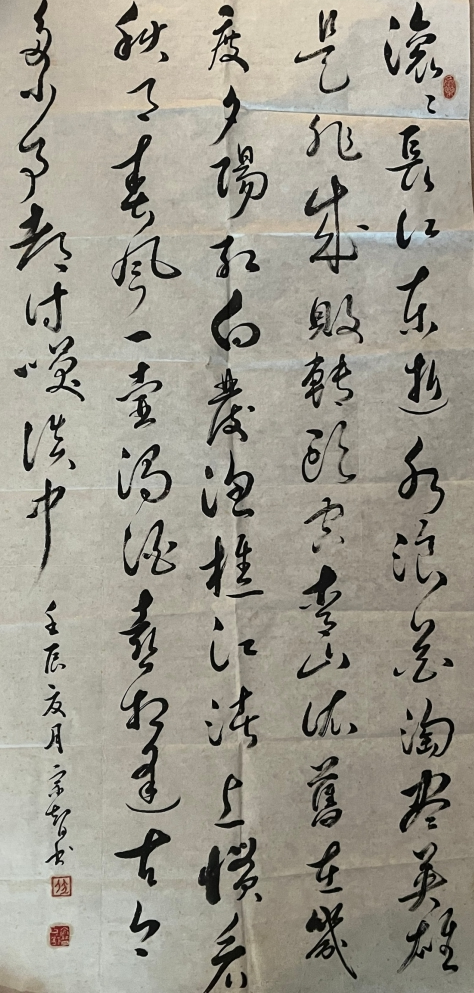 滚〻長江东逝水浪花淘尽英雄
是非成敗轉頭空青山依舊在幾
度夕陽红白發渔樵江渚上慣看
秋月春风一壶濁酒喜相逢古今
多少事都付笑谈中
壬辰夏月宗智书